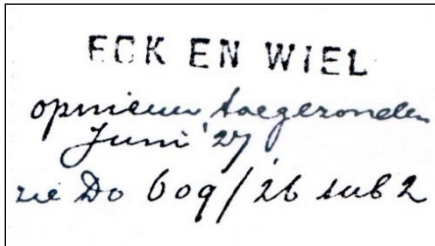 ECK EN WIEL
opnieuw toegezonden
Juni '27
zie Do 609/26 sub 2